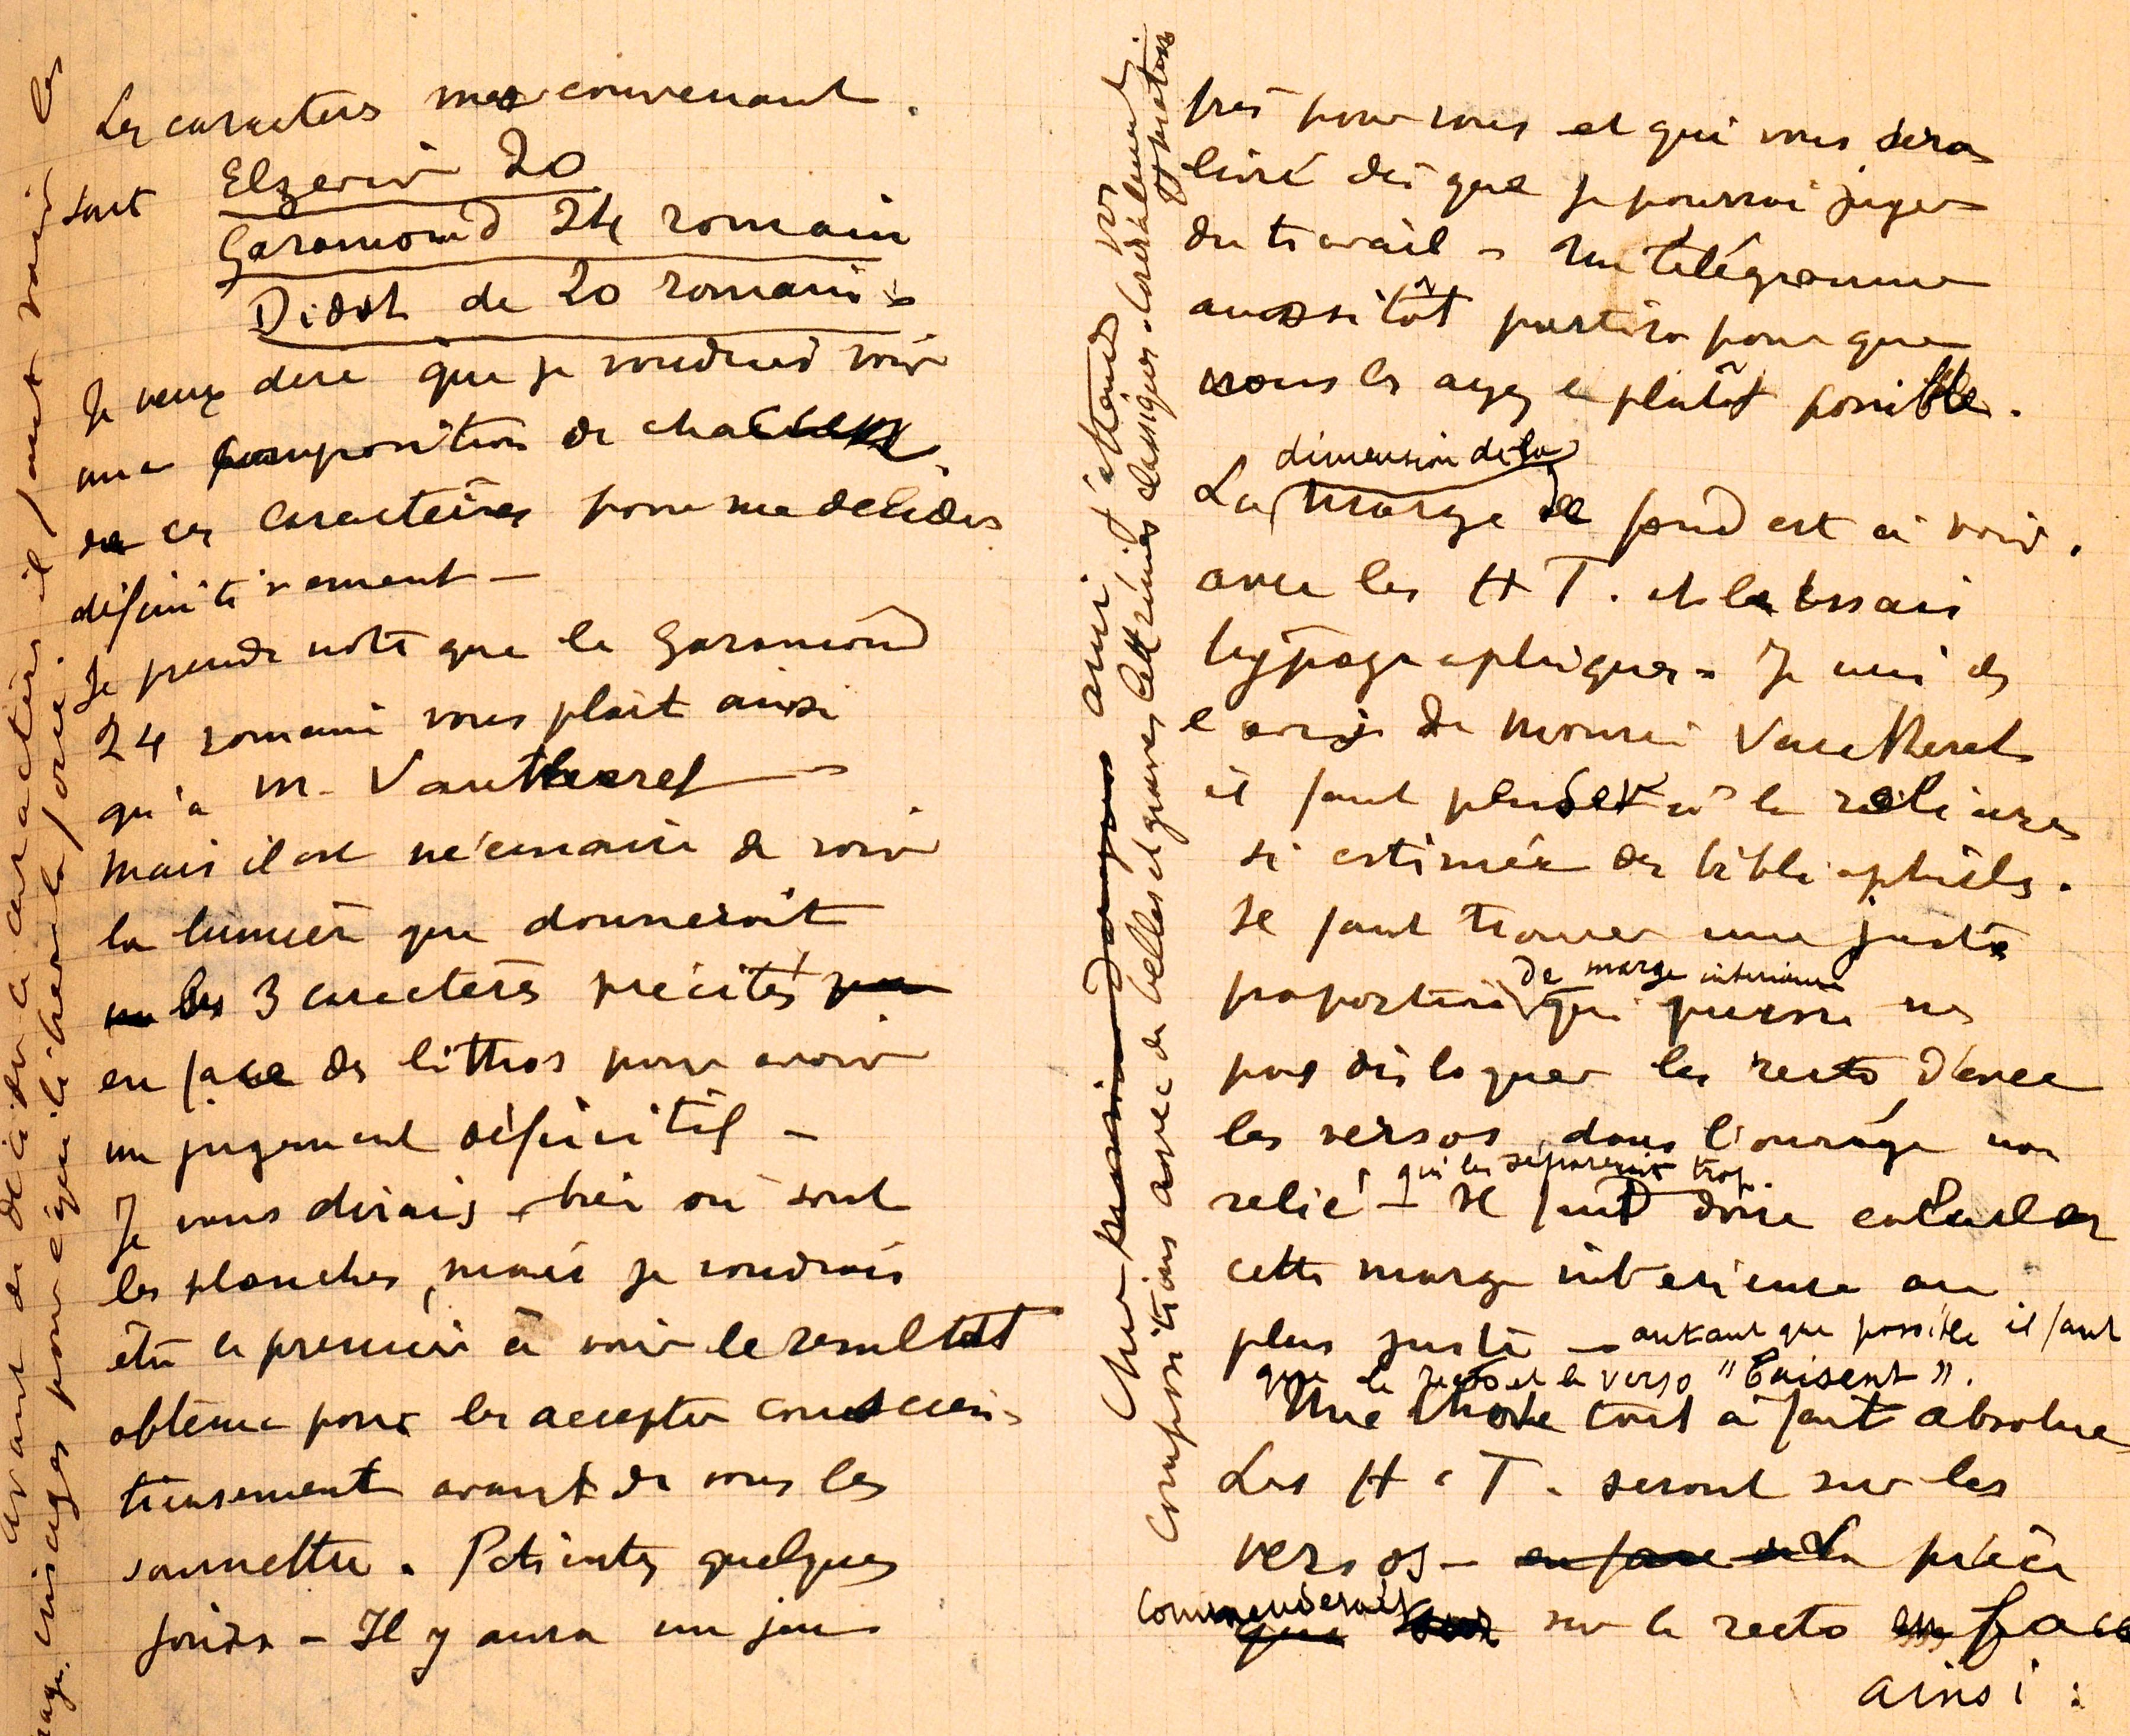 Les caracteres me convenant.
sont Elzevir 20
Garamond 24 romain
Didot de 20 romain -
Je veux dire que je voudrais voir
une composition de chacun
de ces caractères pour me décider
définitivement -
Je prends note que le Garamond
24 romain vous plait ainsi
qu'à M. Vautheret -
Mais il est nécessaire de voir
la lumière que donnerait
les 3 caractères précités
en face des lithos pour avoir
un jugement définitif -
Je vous dirais bien où sont
les planches, mais je voudrais
être le premier à voir le resultat
obtenu pour les accepter conscien-
tieusement avant de vous les
soumettre. Patientez quelques
jours - Il y aura un jeu
avant de décider le caractère il faut voir les
images pour équilibrer la force.
Cher ami j'attends vos
compositions avec de belles et graves lettrines classiques.
près pour vous et qui vous sera
livré dès que je pourrai juger
du travail - un télégramme
aussitôt partira pour que
vous les ayez le plutôt possible.
dimension de la
La marge de fond est à voir.
avec les H T. et les essais
typographiques - Je suis de
l'avis de Monsieur Vautheret
il faut penser à la reliure
si estimée des bibliophiles.
Il faut trouver une juste
proportion de marge interieure qui puisse ne
pas disloquer les rectos d'avec
les versos, dans l'ouvrage non
qui les separerait trop.
relié - Il faut donc calculer
cette marge interieure au
plus juste - autant que possible il faut
que le recto et le verso "baisent".
Une chose tout à fait absolue
Les H.T. seront sur les
versos - en face de la pièce
commencerait sur le recto en face
ainsi :